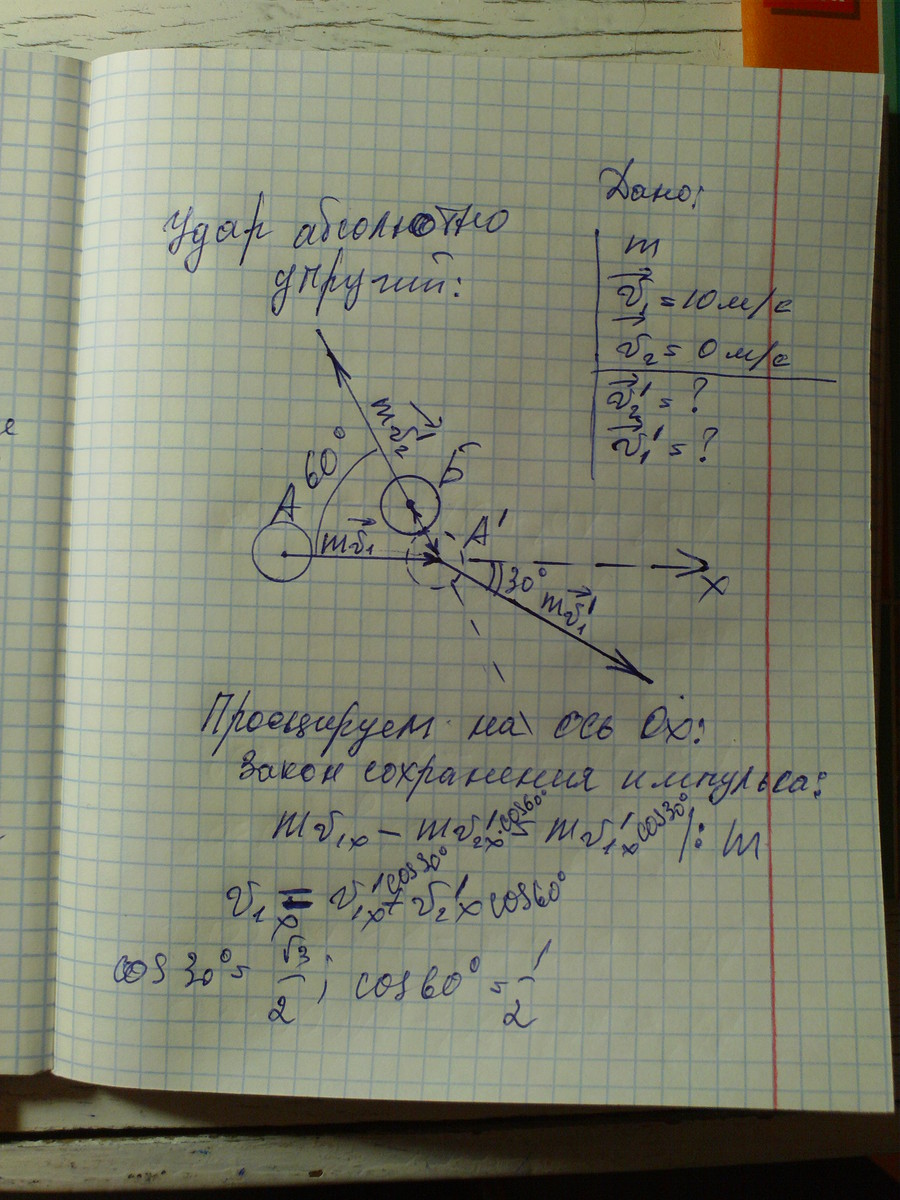 Удар абсолютно
упругий:
Дано:
m
v⃗₁ = 10 м/с
v⃗₂ = 0 м/с
v⃗₂' = ?
v⃗₁' = ?
60°
mv⃗₂'
Б
A
mv⃗₁
A'
30°
mv⃗₁'
x
Проецируем на ось Ox:
Закон сохранения импульса:
mv₁ₓ − mv₂ₓ' · cos60° = mv₁ₓ' cos30° |: m
v₁ₓ = v₁ₓ' cos30° + v₂'ₓ cos60°
cos 30° = √3/2 ; cos 60° = 1/2